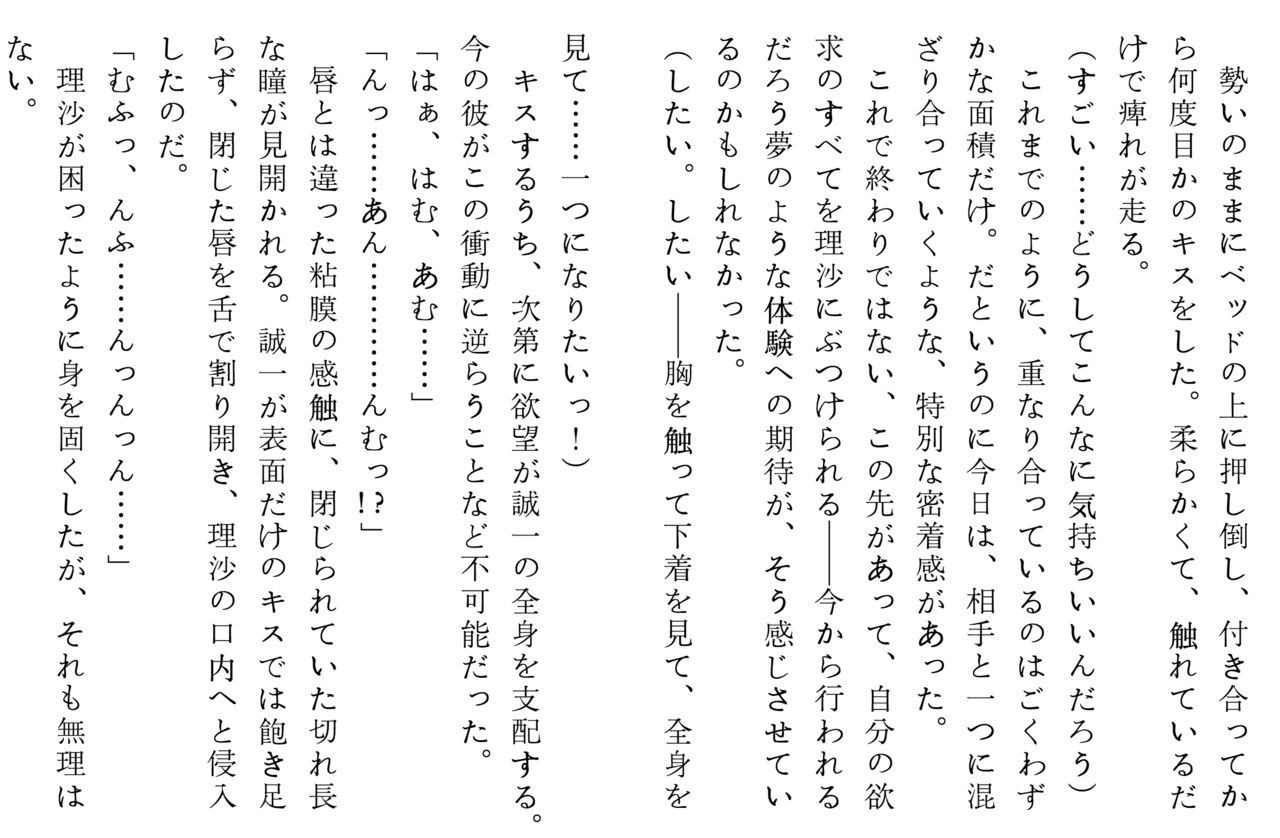 勢いのままにベッドの上に押し倒し、付き合ってか
ら何度目かのキスをした。柔らかくて、触れているだ
けで痺れが走る。
（すごい……どうしてこんなに気持ちいいんだろう）
　これまでのように、重なり合っているのはごくわず
かな面積だけ。だというのに今日は、相手と一つに混
ざり合っていくような、特別な密着感があった。
　これで終わりではない、この先があって、自分の欲
求のすべてを理沙にぶつけられる――今から行われる
だろう夢のような体験への期待が、そう感じさせてい
るのかもしれなかった。
（したい。したい――胸を触って下着を見て、全身を
見て……一つになりたいっ！）
　キスするうち、次第に欲望が誠一の全身を支配する。
今の彼がこの衝動に逆らうことなど不可能だった。
「はぁ、はむ、あむ……」
「んっ……あん…………んむっ!?」
　唇とは違った粘膜の感触に、閉じられていた切れ長
な瞳が見開かれる。誠一が表面だけのキスでは飽き足
らず、閉じた唇を舌で割り開き、理沙の口内へと侵入
したのだ。
「むふっ、んふ……んっんっん……」
　理沙が困ったように身を固くしたが、それも無理は
ない。